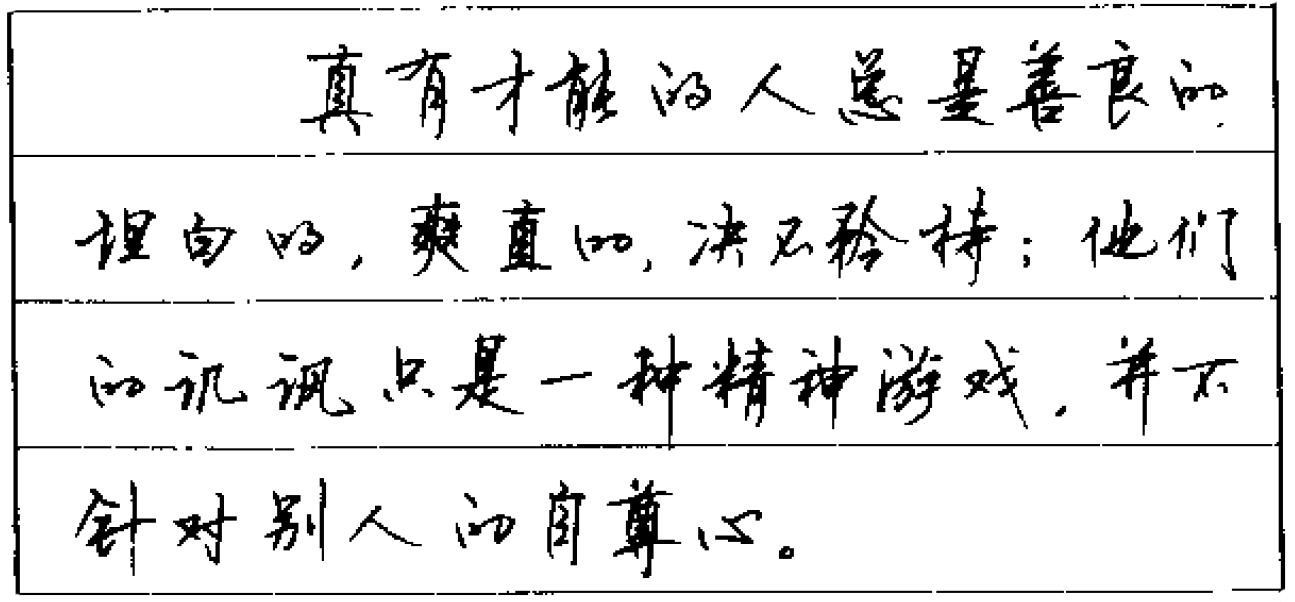 真有才能的人总是善良的,
坦白的,爽直的,决不矜持;他们
的讥讽只是一种精神游戏,并不
针对别人的自尊心。